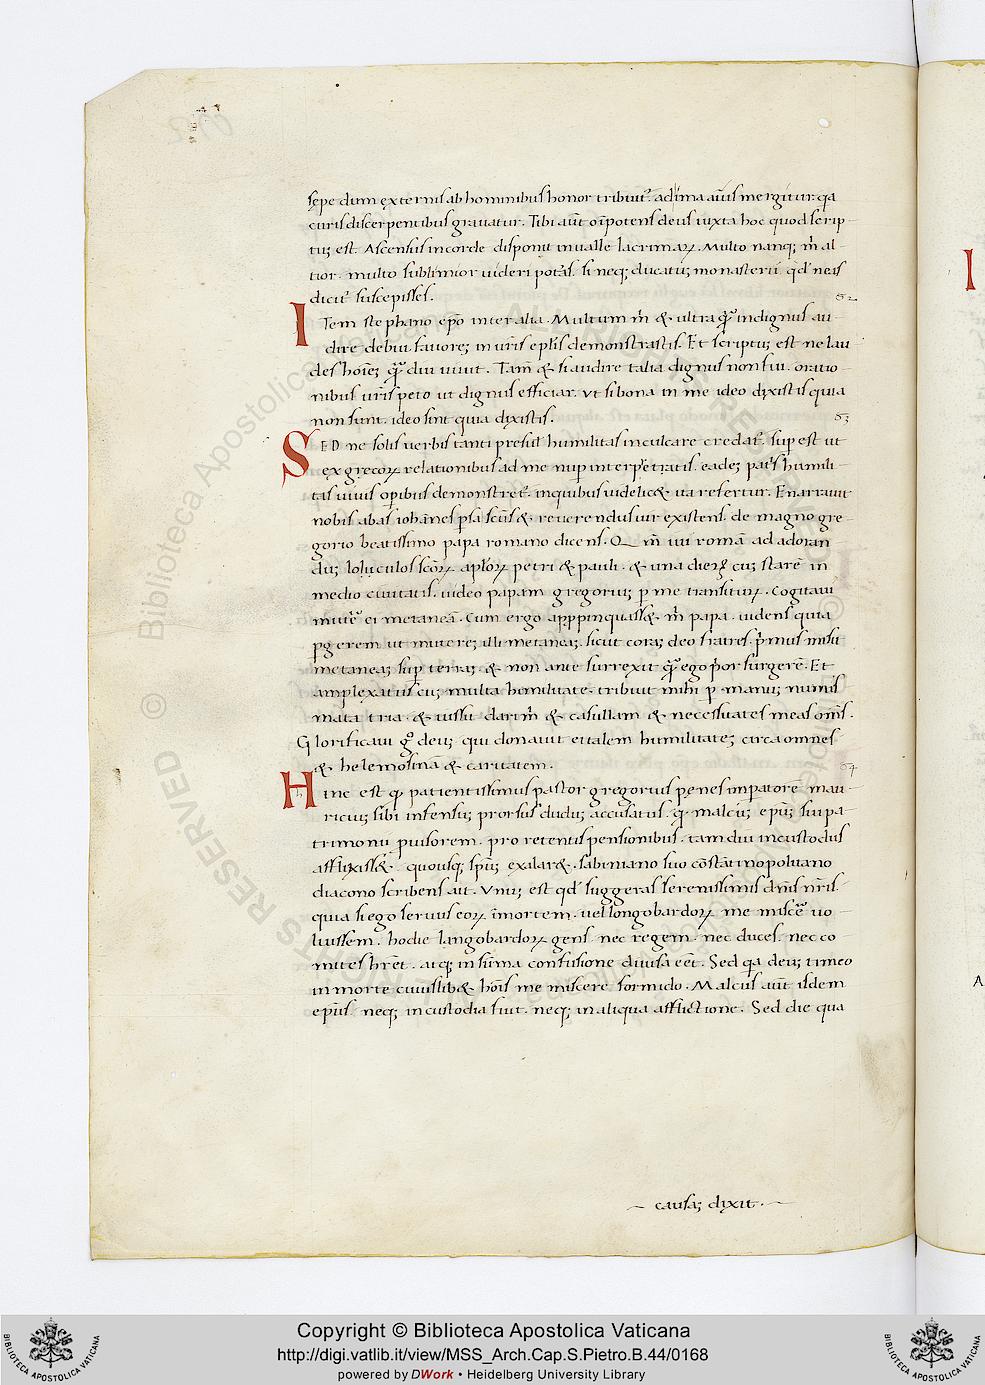 sepe dum externis ab hominibus honor tribuit᷑. ad ima animus mergitur. qa
curis discerpentibus gravatur. Tibi aut̄ om̄potens deus iuxta hoc quod scrip-
tū est. Ascensus in corde disponit in valle lacrimaꝝ. Multo nanq; m̄ al-
tior. multo sublimior videri poteras. si neq; ducatū monasterii. qd̄ neas
dicit᷑ suscepisses.
62
ITem stephano ep̄o inter alia. Multum m̄ & ultra quā indignus au-
dire debui favorē in vr̄is ep̄lis demonstrastis. Et scriptū est ne lau
des hoīem quādiu vivit. Tam̄ & si audire talia dignus non fui. oratio-
nibus vr̄is peto ut dignus efficiar. ut si bona in me ideo dixistis quia
non sunt. ideo sint quia dixistis.
63
SED ne solis verbis tanti presul humilitas inculcare credat᷑. sup est ut
ex grecoꝝ relationibus ad me nup interpretratis. eadē patris humili-
tas vivis opibus demonstret᷑. in quibus videlic& ita refertur. Enarravit
nobis abas ioh̄annes persa sc̄us & reverendus vir existens. de magno gre-
gorio beatissimo papa romano dicens. Q m̄ ivi romā ad adoran
dū loculos sc̄oꝝ ap̄loꝝ petri & pauli. & una dierū cū starē in
medio civitatis. video papam gregoriū p me transiturū. Cogitavi
mittere ei metaneā. Cum ergo appropinquass& m̄ papa. videns quia
pgerem ut mitterē illi metaneā. sicut corā deo fratres. primus misit
metaneas sup terrā. & non ante surrexit quā ego prior surgerē. Et
amplexatus cū multa humilitate. tribuit mihi p manū numis
mata tria. & iussit dari m̄ & casullam & necessitates meas om̄s.
Glorificavi go deū qui donavit ei talem humilitatē circa omnes
& helemosinā & caritatem.
64
Hinc est qd patientissimus pastor gregorius penes imperatorē mau
ricius sibi infensū prorsus dudū accusatus. qd malcū ep̄m sui pa-
trimonii puisorem. pro retentis pensionibus. tam diu in custodiis
afflixiss&. quousq; sp̄m exalar&. sabiniano suo cōstātinopolitano
diacono scribens ait. Unū est qd suggeras serenissimis dn̄is nr̄is.
quia si ego servus eoꝝ ī mortem. vel longobardoꝝ me miscere vo-
luissem. hodie langobardoꝝ gens. nec regem. nec duces. nec co
mites hr̄et. atq; in sūma confusione divisa eēt. Sed qa deū timeo
in morte cuiuslib& hoīs me miscere formido. Malcus aut̄ isdem
ep̄us. neq; in custodia fuit. neq; in aliqua afflictione. Sed die qua
~ causā dixit. ~
Copyright © Biblioteca Apostolica Vaticana
http://digi.vatlib.it/view/MSS_Arch.Cap.S.Pietro.B.44/0168
powered by DWork • Heidelberg University Library